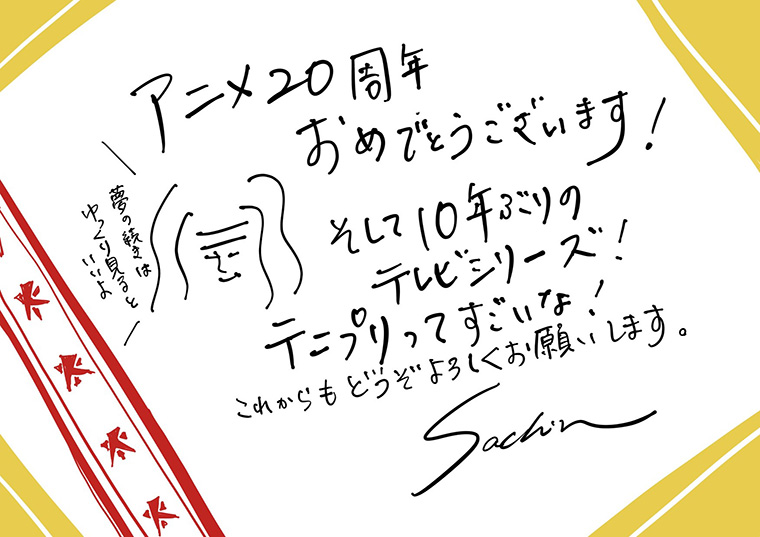 アニメ20周年
おめでとうございます!
夢の続きは
ゆっくり見ると
いいよ
そして10年ぶりの
テレビシリーズ!
テニプリってすごいな!
これからもどうぞよろしくお願いします。
Sachin